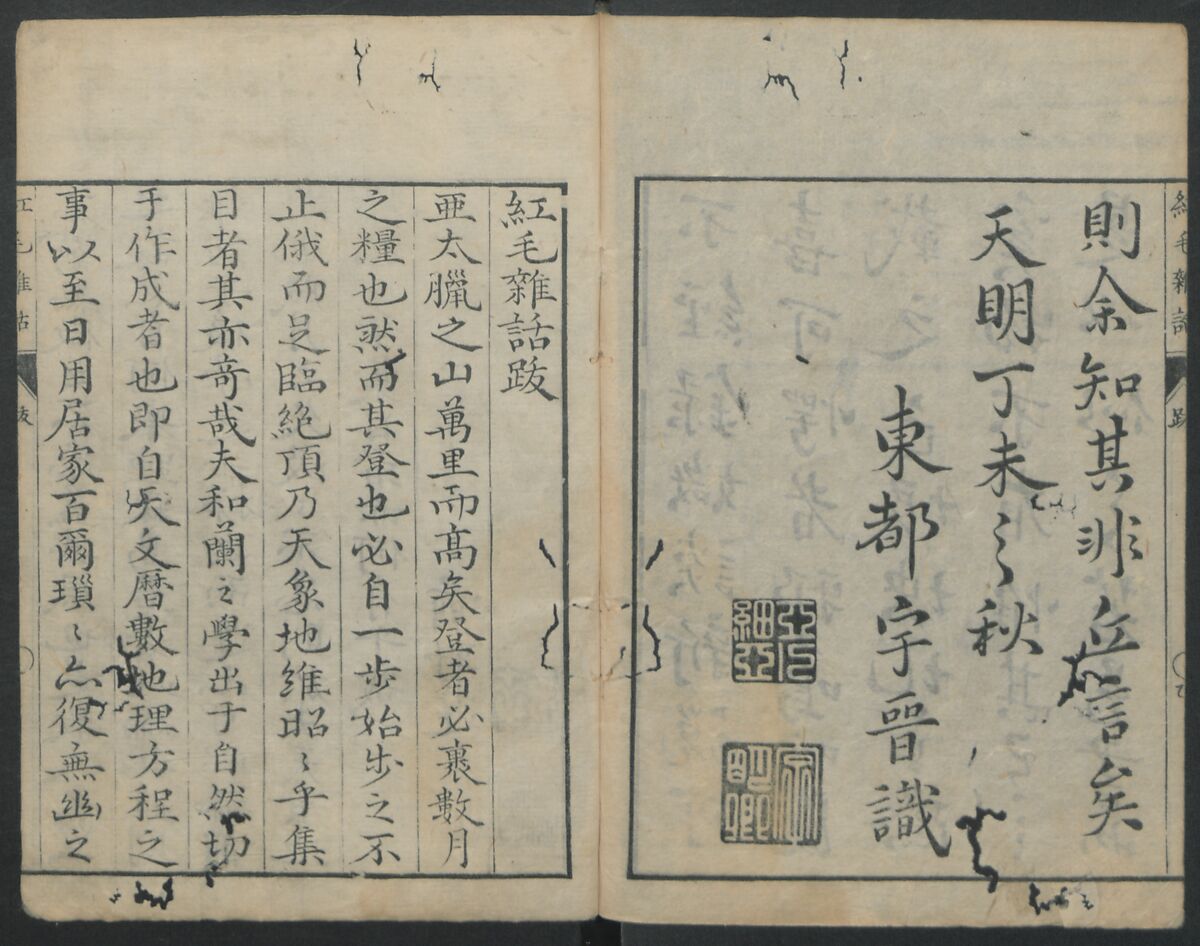 則余知其非妄言矣
天明丁未之秋
東都宇晉識
紅毛雜話跋
亜太臘之山萬里而高矣登者必裹數月
之糧也然而其登也必自一歩始歩之不
止俄而足臨絶頂乃天象地維昭〻乎集
目者其亦竒哉夫和蘭之學出于自然切
于作成者也即自天文暦數地理方程之
事以至日用居家百爾瑣〻亦復無幽之